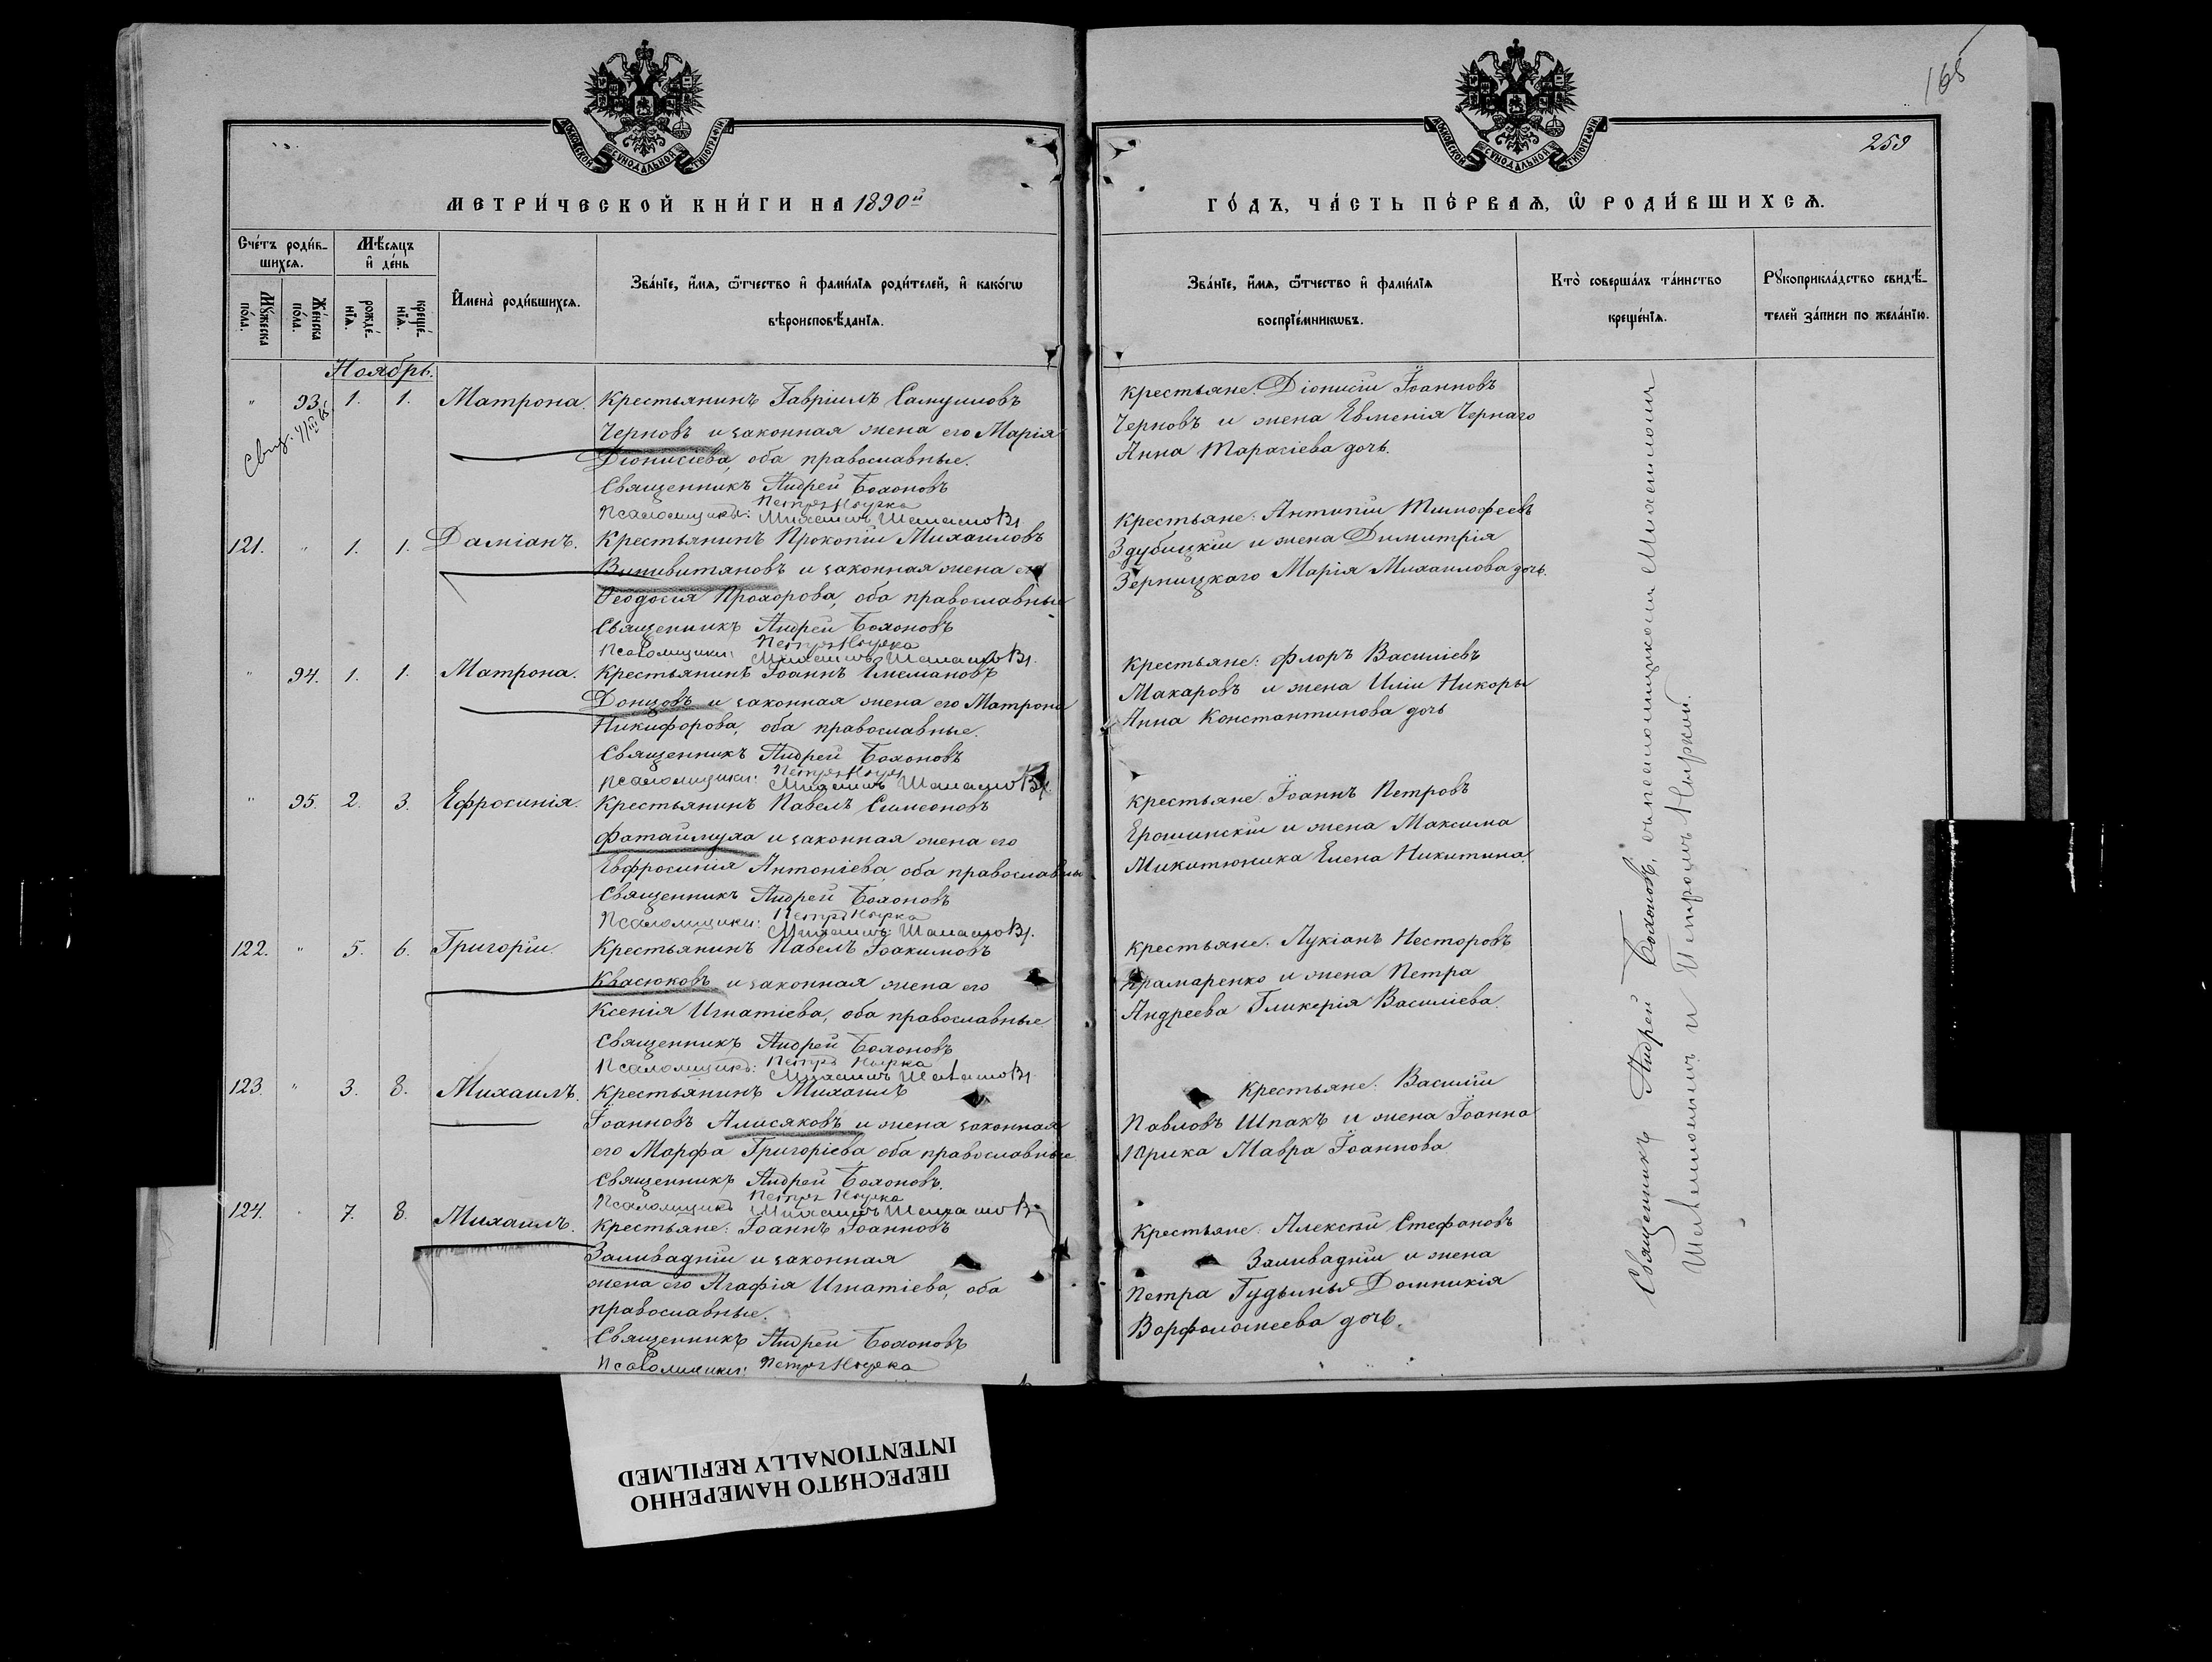 168
259
МОСКОВСКОЙ СѴНОДАЛЬНОЙ ТИПОГРАФІИ
МОСКОВСКОЙ СѴНОДАЛЬНОЙ ТИПОГРАФІИ
МЕТРИ́ЧЕСКОЙ КНИ́ГИ НА 1890й
ГО́ДЪ, ЧА́СТЬ ПЕ́РВАѦ, Ѡ РОДИ́ВШИХСѦ.
Счéтъ роди́в-
шихсѧ.
Мѣ́сѧцъ
и҆ дéнь
Мꙋ́жеска
пóла.
Жéнска
пóла.
рождé-
нїѧ.
крещé-
нїѧ.
И҆менà роди́вшихсѧ.
Звáнїе, и҆́мѧ, ѻ҆́тчество и҆ фами́лїѧ роди́телей, и҆ какóгѡ
вѣроисповѣ́данїѧ.
Звáнїе, и҆́мѧ, ѻ҆́тчество и҆ фами́лїѧ
воспрїéмникѡвъ.
Ктò совершáлъ тáинство
крещéнїѧ.
Рꙋкоприклáдство свидѣ́-
телей зáписи по желáнїю.
Ноябрь.
" 93. 1. 1. Матрона.
Крестьянинъ Гавріилъ Самуиловъ
Черновъ и законная жена его Марія
Діонисіева, оба православные.
Священникъ Андрей Бохоновъ
Псаломщики: Петръ Нырка
Михаилъ
Крестьяне: Діонисій Іоанновъ
Черновъ и жена Евменія Чернаго
Анна Тарасіева дочь.
121. " 1. 1. Даміанъ.
Крестьянинъ Прокопій Михаиловъ
и законная жена его
Ѳеодосія Прохорова, оба православные
Священникъ Андрей Бохоновъ
Псаломщики: Петръ Нырка
Михаилъ
Крестьяне: Антипій Тимофеевъ
Здубицкій и жена Димитрія
Зерницкаго Марія Михаилова дочь.
" 94. 1. 1. Матрона.
Крестьянинъ Іоаннъ
Донцовъ и законная жена его Матрона
Никифорова, оба православные.
Священникъ Андрей Бохоновъ
Псаломщики: Петръ
Михаилъ
Крестьяне: Флоръ Василіевъ
Макаровъ и жена Иліи Никоры
Анна Константинова дочь
" 95. 2. 3. Ефросинія.
Крестьянинъ Павелъ Симеоновъ
и законная жена его
Евфросинія Антоніева, оба православные
Священникъ Андрей Бохоновъ
Псаломщики: Петръ Нырка
Михаилъ
Крестьяне: Іоаннъ Петровъ
Ерошинскій и жена Максима
Микитюника Елена Никитина.
122. " 5. 6. Григорій.
Крестьянинъ Павелъ Іоакимовъ
Квасюковъ и законная жена его
Ксенія Игнатіева, оба православные
Священникъ Андрей Бохоновъ
Псаломщики: Петръ Нырка
Михаилъ
Крестьяне: Лукіанъ Несторовъ
Крамаренко и жена Петра
Андреева Гликерія Василіева.
123. " 3. 8. Михаилъ.
Крестьянинъ Михаилъ
Іоанновъ Алисяковъ и жена законная
его Марфа Григоріева оба православные.
Священникъ Андрей Бохоновъ.
Псаломщики Петръ Нырка
Михаилъ
Крестьяне: Василій
Павловъ Шпакъ и жена Іоанна
Мавра Іоаннова
124. " 7. 8. Михаилъ.
Крестьяне: Іоаннъ Іоанновъ
Заливадній и законная
жена его Агафія Игнатіева, оба
православные.
Священникъ Андрей Бохоновъ
Псаломщики: Петръ Нырка
Крестьяне: Алексѣй Стефановъ
Заливадній и жена
Петра Гудымы Домникія
Варфоломеева дочь.
Священникъ Андрей Бохоновъ, съ псаломщиками Михаиломъ
и Петромъ Ныркой.
ПЕРЕСНЯТО НАМЕРЕННО
INTENTIONALLY REFILMED